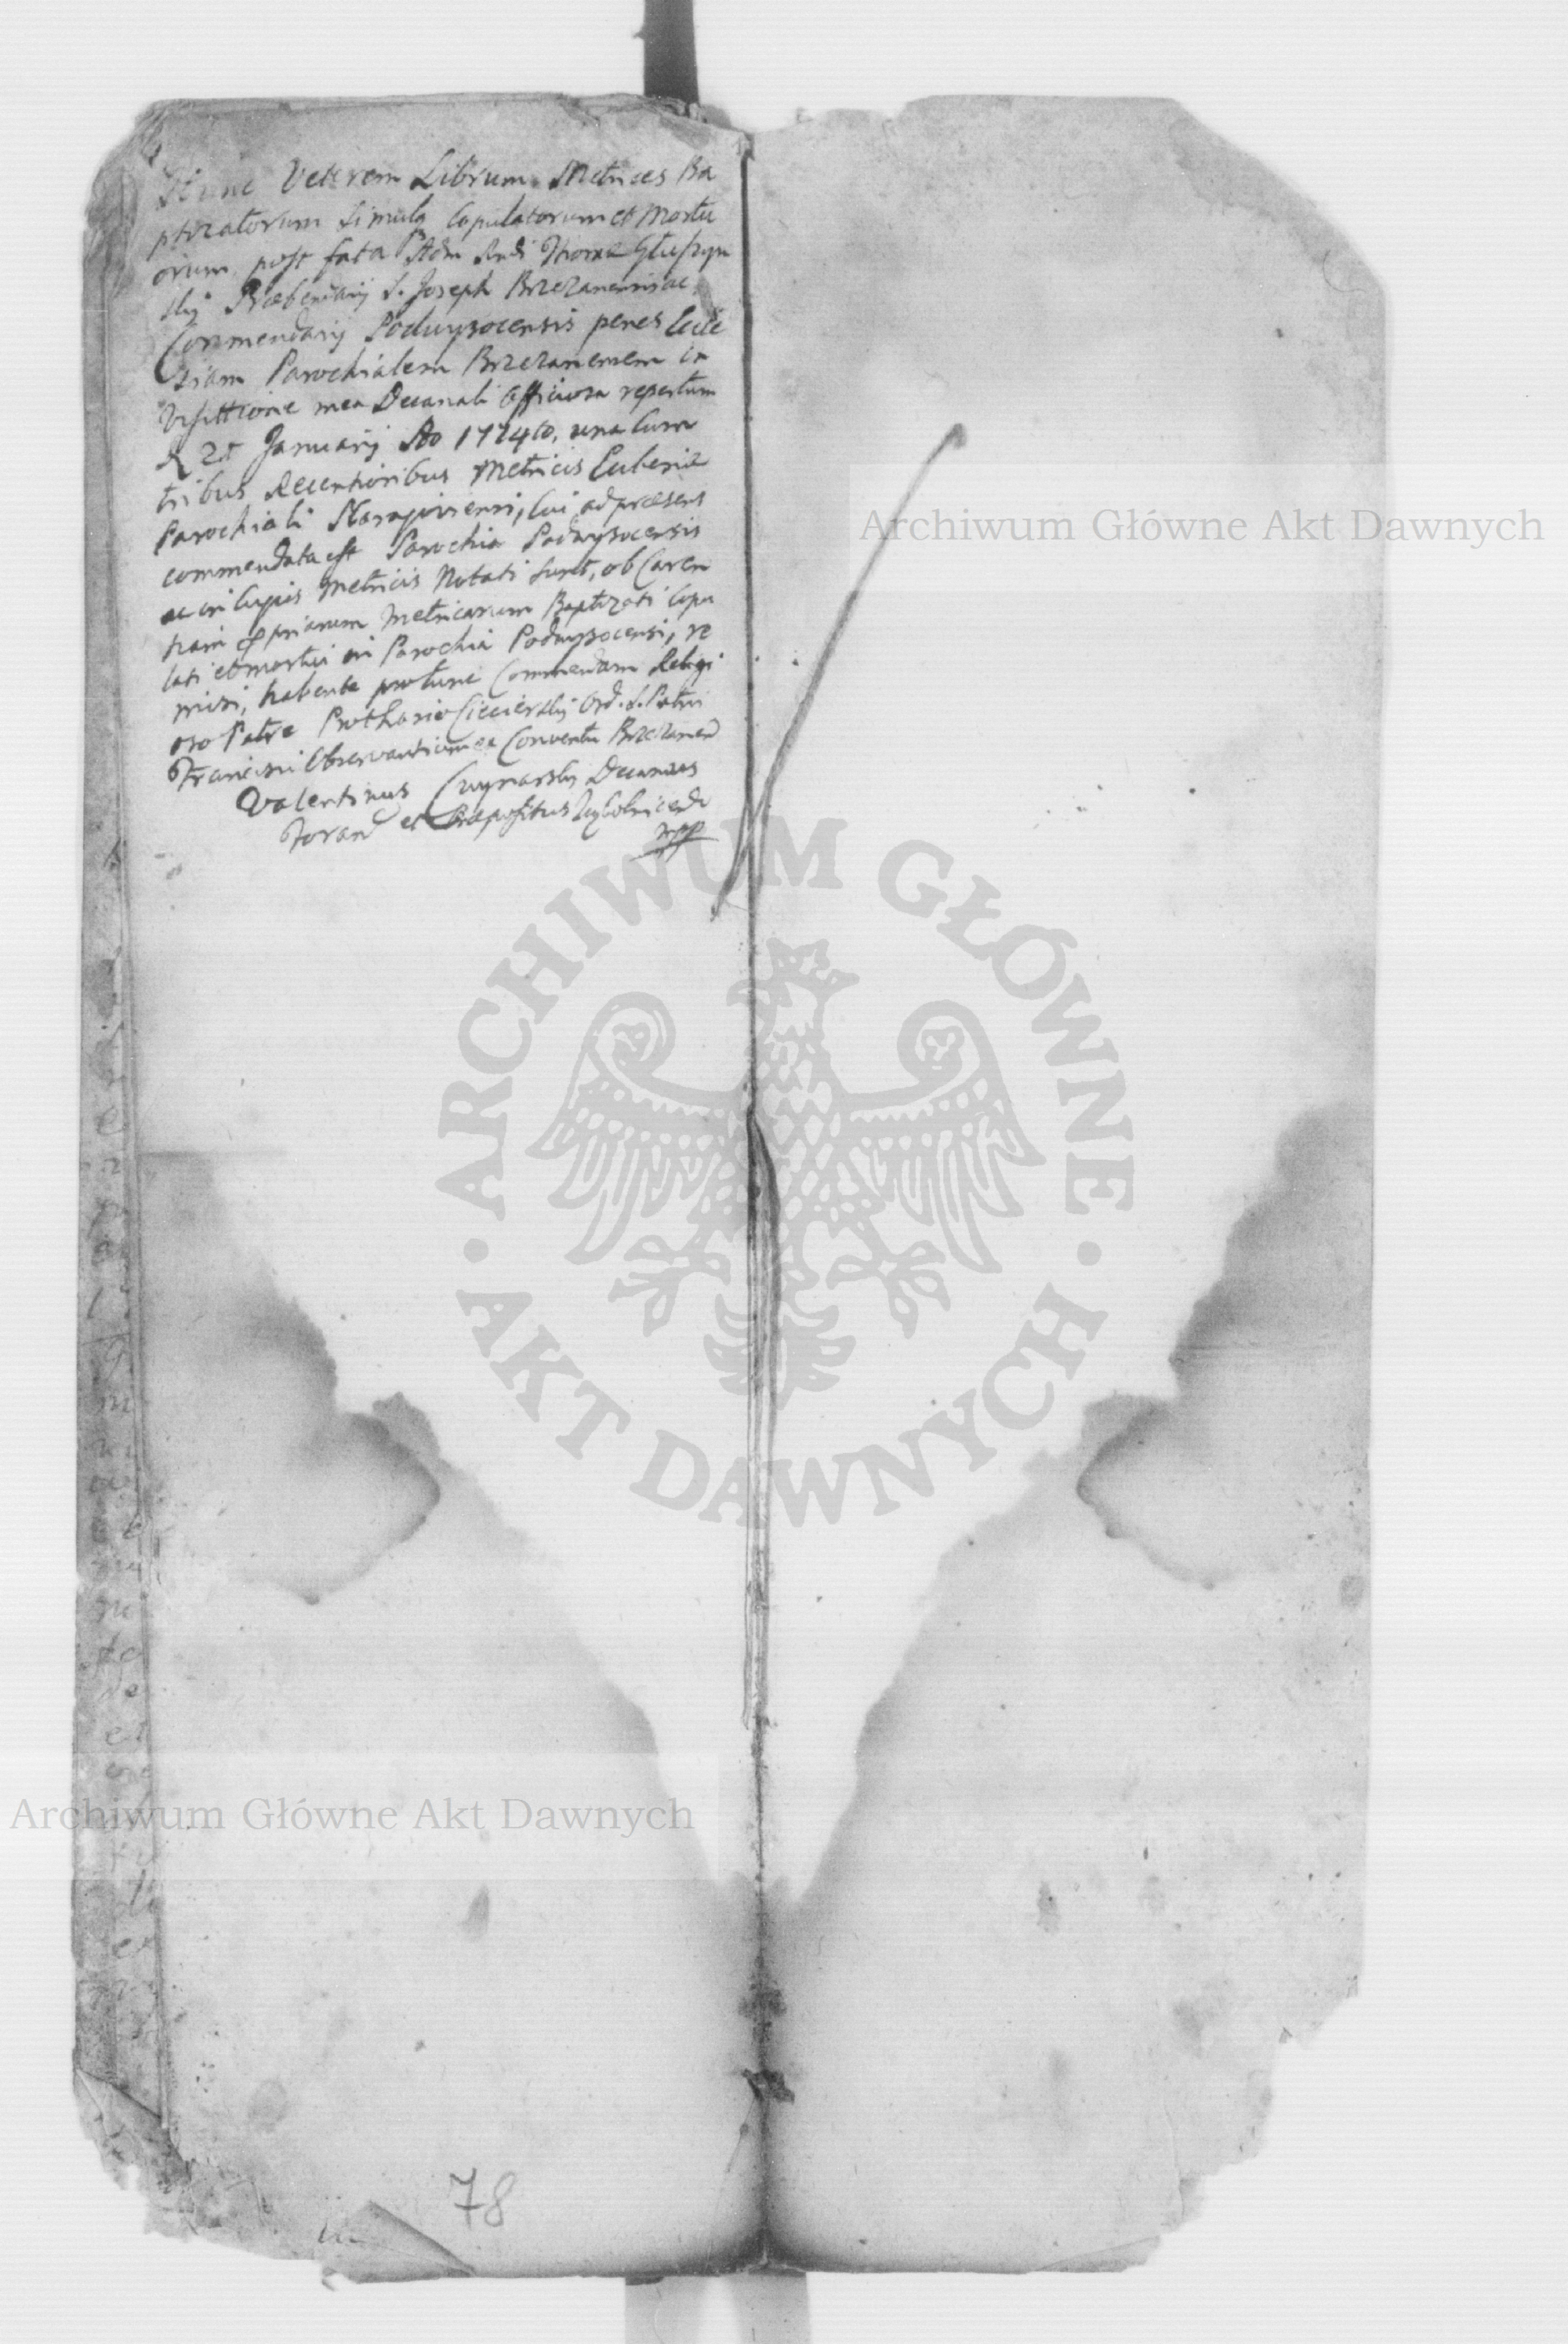 Hunc Veterem Librum Metrices Ba
ptizatorum simulq Copulatorum et Mortu
orum post fata Adm Rndi Thomæ Głuszyn
skij Præbendarij S. Joseph Brzezanensis ac
Commendarij Podwysocensis penes Eccle
siam Parochialem Brzezanensem in
Visittione mea Decanali officiosa repertum
d. 25 Januarij Ao 1724to, una cum
tribus Recentioribus Metricis Ecclesiæ
Parochiali Narajoviensi, cui ad præsens
commendata est Parochia Podwysocensis
ac in cujus Metricis Notati sunt, ob Caren
tiam propriarum Metricarum Baptizati Copu
lati et mortui in Parochia Podwysocensi, re
misi, habente protunc Commendam Religi
oso Patre Prothasio Ciecierskij Ord. S. Patris
Francisci Observantium ex Conventu Brzezanen
Valentinus Cwynarskij Decanus
Foran et Præpositus
mpp
78
Archiwum Główne Akt Dawnych
Archiwum Główne Akt Dawnych
ARCHIWUM GŁÓWNE
AKT DAWNYCH